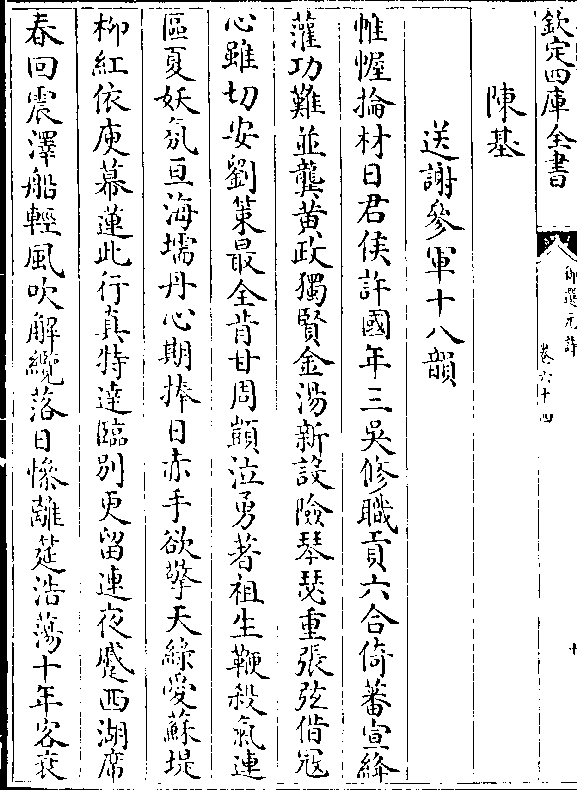 欽定四庫全書
御選元詩
卷六十四
十
陳基
送謝參軍十八韻
帷幄掄材日君侯許國年三吳修職貢六合倚蕃宣絳
灌功難並龔黃政獨賢金湯新設險琴瑟重張弦借冦
心雖切安劉策最全肯甘周顗泣勇著祖生鞭殺氣連
區夏妖氛亘海堧丹心期捧日赤手欲擎天緑愛蘇堤
柳紅依庾幕蓮此行真特達臨別更留連夜蹙西湖席
春回震澤船輕風吹解纜落日慘離筵浩蕩十年客衰